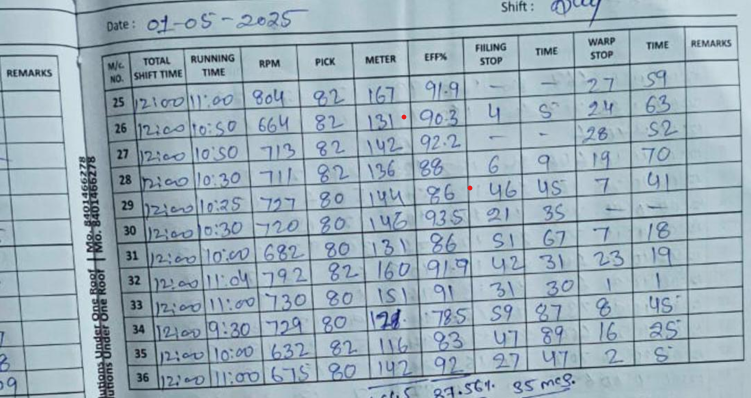 Shift : Day
Date : 01-05-2025
REMARKS
M/c. NO. TOTAL SHIFT TIME RUNNING TIME RPM PICK METER EFF% FIILING STOP TIME WARP STOP TIME REMARKS
25 12:00 11:00 804 82 167 91.9 - - 27 59
26 12:00 10:50 664 82 131 90.3 4 5 24 63
27 12:00 10:50 713 82 142 92.2 - - 28 52
28 12:00 10:30 711 82 136 88 6 9 19 70
29 12:00 10:25 727 80 144 86 46 45 7 41
30 12:00 10:30 720 80 146 93.5 21 35 - -
31 12:00 10:00 682 80 131 86 51 67 7 18
32 12:00 11:04 792 82 160 91.9 42 31 23 19
33 12:00 11:00 730 80 151 91 31 30 1 1
34 12:00 9:30 729 80 78.5 59 87 8 45
35 12:00 10:00 632 82 116 83 47 89 16 25
36 12:00 11:00 675 80 142 92 27 47 2 5
87.56% 35
Under One Roof | Mo. 8401466278
utions Under One Roof | Mo. 8401466278